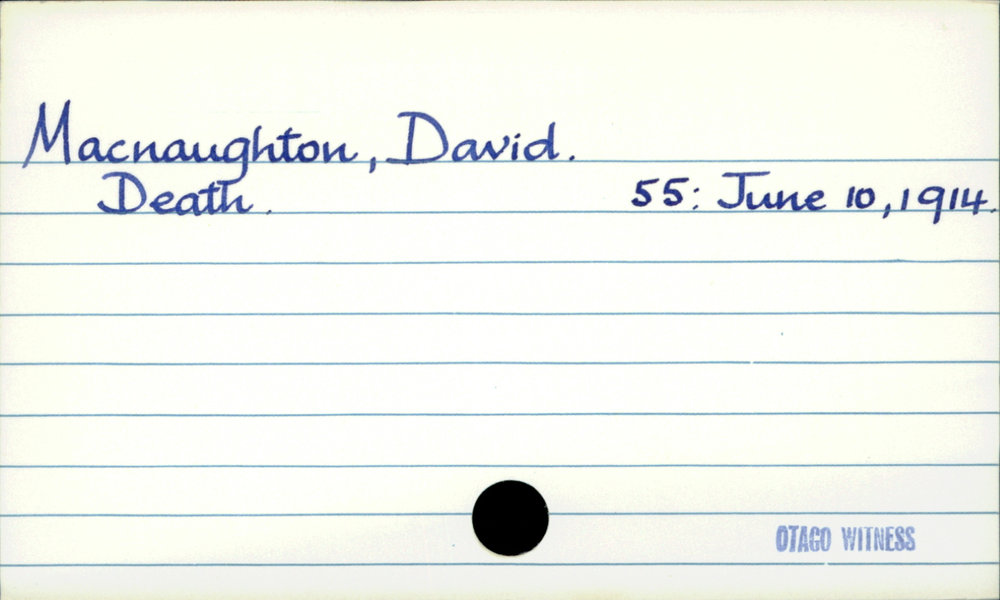 Macnaughton, David.
Death. 55: June 10, 1914.
OTAGO WITNESS